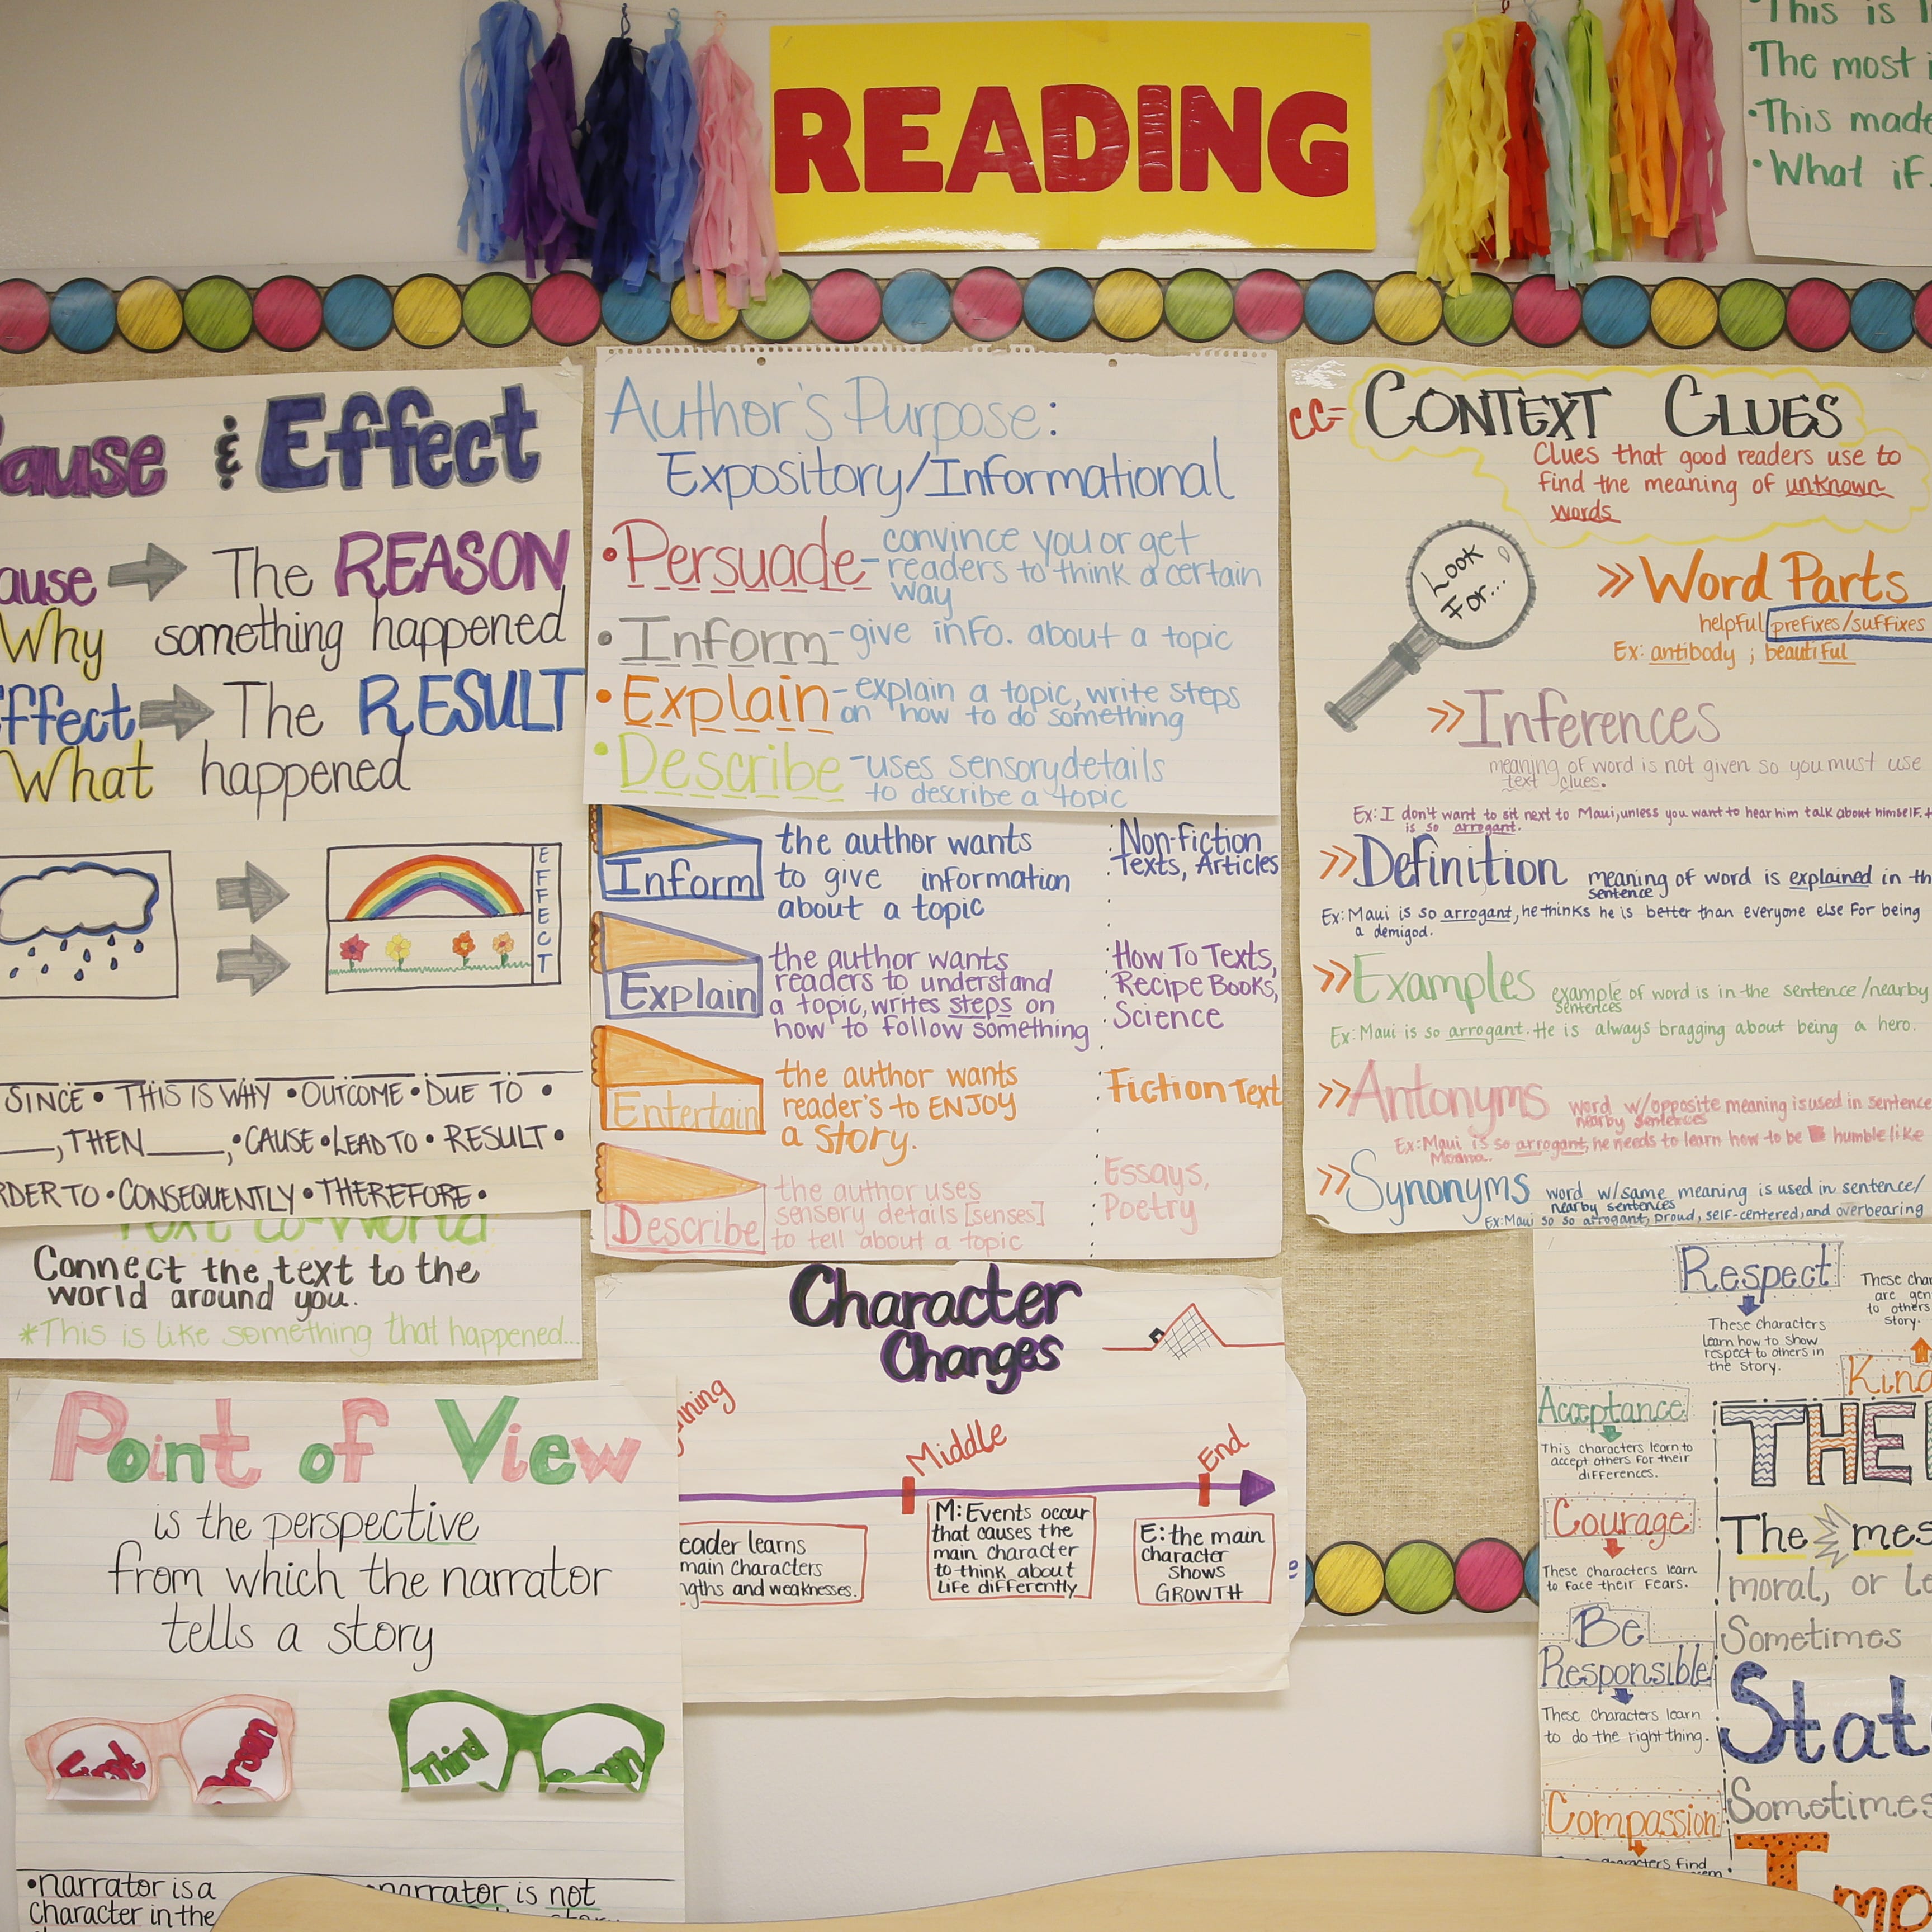 READING
This is
•The most
•This made
•What if
Cause & Effect
Cause The REASON
Why something happened
Effect The RESULT
What happened
EFFECT
SINCE • THIS IS WHY • OUTCOME • DUE TO •
____, THEN ____, • CAUSE • LEAD TO • RESULT •
• CONSEQUENTLY • THEREFORE •
Text to World
Connect the text to the
world around you.
*This is like something that happened...
Author's Purpose:
Expository/Informational
•Persuade- convince you or get
readers to think a certain
way
•Inform-give info. about a topic
•Explain-explain a topic, write steps
on "how to do something
•Describe-uses sensory details
to describe a topic
Inform
the author wants
to give information
about a topic
Non-fiction
Texts, Articles
Explain
the author wants
readers to understand
a topic, writes steps on
how to follow something
How To Texts,
Recipe Books,
Science
Entertain
the author wants
reader's to ENJOY
a story.
Fiction Text
Describe
the author uses
sensory details [senses]
to tell about a topic
Essays,
Poetry
CC= CONTEXT CLUES
Clues that good readers use to
find the meaning of unknown
words
Look
For...
>>Word Parts
helpful prefixes/suffixes
Ex: antibody ; beautiful
>>Inferences
meaning of word is not given so you must use
text clues.
Ex: I don't want to sit next to Maui, unless you want to hear him talk about himself.
is so arrogant.
>>Definition meaning of word is explained in
sentence
Ex: Maui is so arrogant, he thinks he is better than everyone else for being
a demigod.
>>Examples example of word is in the sentence/nearby
sentences
Ex: Maui is so arrogant. He is always bragging about being a hero.
>>Antonyms word w/opposite meaning is used in sentence
nearby sentences
Ex: Maui is so arrogant, he needs to learn how to be humble like
Moana.
>>Synonyms word w/same meaning is used in sentence/
nearby sentences
Ex: Maui so so arrogant, proud, self-centered, and overbearing
Character
Changes
Middle
End
learns
main characters
and weaknesses.
M: Events occur
that causes the
main character
to think about
life differently
E: the main
character
shows
GROWTH
Point of View
is the perspective
from which the narrator
tells a story
First Person
Third Person
•narrator is a
character in the
narrator is not
Respect
These characters
learn how to show
respect to others in
the story.
These
are
to others
story.
Acceptance
This characters learn to
accept others for their
differences.
Courage
These characters learn
to face their fears.
Be
Responsible
These characters learn
to do the right thing.
Compassion
characters find
The
moral, or
Sometimes
Sometimes